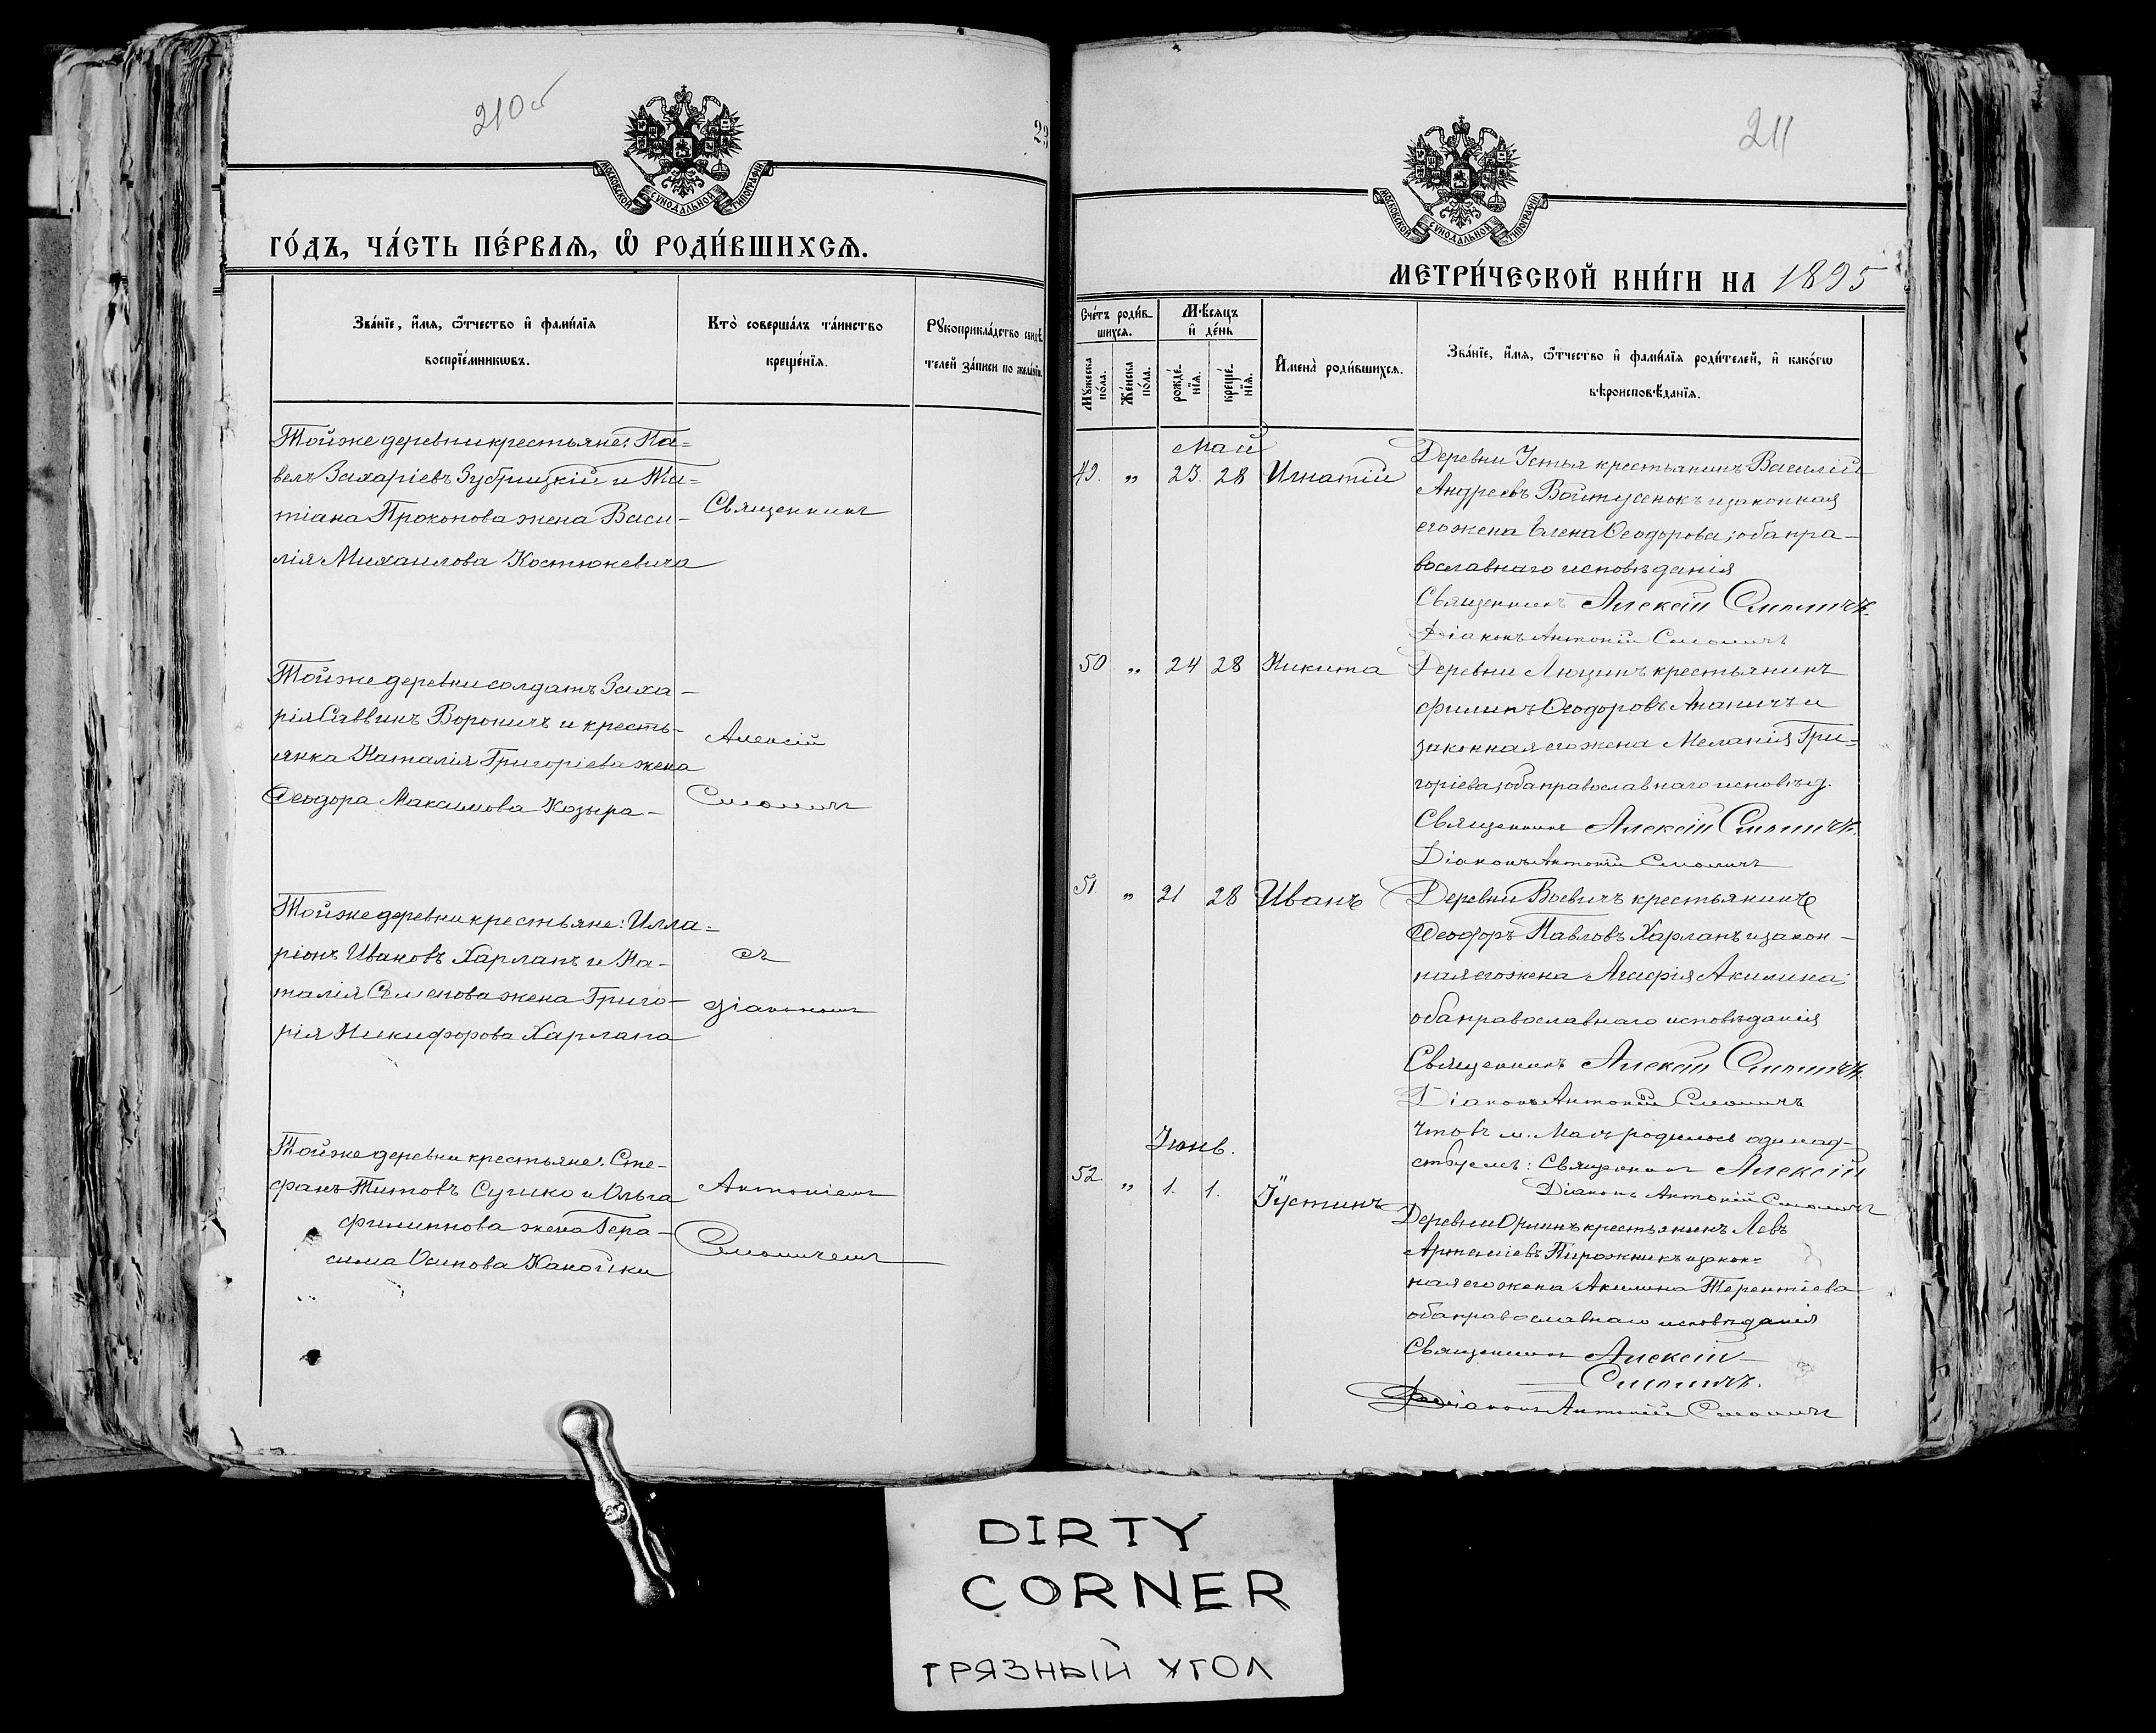 210об
МОСКОВСКОЙ СѴНОДАЛЬНОЙ ТИПОГРАФІИ
ГО́ДЪ, ЧА́СТЬ ПЕ́РВАѦ, Ѽ РОДИ́ВШИХСѦ.
Зва́нїе, и҆́мѧ, ѻ҆́тчество и҆ фами́лїѧ
воспрїе́мникѡвъ.
Кто̀ соверша́лъ та́инство
креще́нїѧ.
Рꙋкоприкла́дство свидѣ́
телей за́писи по жела́нїю.
Тойже деревни крестьяне: Па=
велъ Захаріевъ Зубрицкій и Та=
тіана Прокопова жена Васи-
лія Михаилова Костюкевича
Священникъ
Тойже деревни солдатъ Заха-
рія Саввинъ Вороничъ и кресть-
янка Наталія Григоріева жена
Ѳеодора Максимова Козыра-
Алексій
Смоличъ
Тойже деревни крестьяне: Илла=
ріонъ Ивановъ Харланъ и На-
талія Семенова жена Григо-
рія Никифорова Харлана
съ
діакономъ
Тойже деревни крестьяне: Сте-
фанъ Титовъ Супико и Ольга
Филиппова жена Гера-
сима Осипова
Антоніемъ
Смоличемъ
211
МОСКОВСКОЙ СѴНОДАЛЬНОЙ ТИПОГРАФІИ
МЕТРИ́ЧЕСКОЙ КНИ́ГИ НА 1895
Сче́тъ роди́в-
шихсѧ.
Мѣ́сѧцъ
и҆ де́нь
Мꙋ́жеска по́ла.
Же́нска по́ла.
рожде́нїѧ.
креще́нїѧ.
И҆мена̀ роди́вшихсѧ.
Зва́нїе, и҆́мѧ, ѻ҆́тчество и҆ фами́лїѧ роди́телей, и҆ како́гѡ
вѣроисповѣ́данїѧ.
Май
49. „ 23. 28 Игнатій
Деревни Устья крестьянинъ Василій
Андреевъ Войтусенокъ и законная
его жена Елена Ѳеодорова; оба пра-
вославнаго исповѣданія
Священникъ Алексій Смоличъ.
Діаконъ Антоній Смоличъ
50 „ 24 28 Никита
Деревни Люзинъ крестьянинъ
Филипъ Ѳеодоровъ Ананичъ и
законная его жена Меланія Гри=
горіева; оба православнаго исповѣд.
Священникъ Алексій Смоличъ.
Діаконъ Антоній Смоличъ
51. „ 21 28 Иванъ
Деревни Воевичъ крестьянинъ
Ѳеодоръ Павловъ Харланъ и закон-
ная его жена Агафія Акилина;
оба православнаго исповѣданія
Священникъ Алексій Смоличъ.
Діаконъ Антоній Смоличъ
Что въ м. Маѣ родилось одинад-
Священникъ Алексій
Діаконъ Антоній Смоличъ
Іюнь.
52. „ 1. 1. Іустинъ
Деревни Орлинъ крестьянинъ Левъ
Артеміевъ Пирожникъ и закон=
ная его жена Акилина Терентіева
оба православнаго исповѣданія
Священникъ Алексій
Смоличъ.
Діаконъ Антоній Смоличъ
DIRTY
CORNER
ГРЯЗНЫЙ УГОЛ